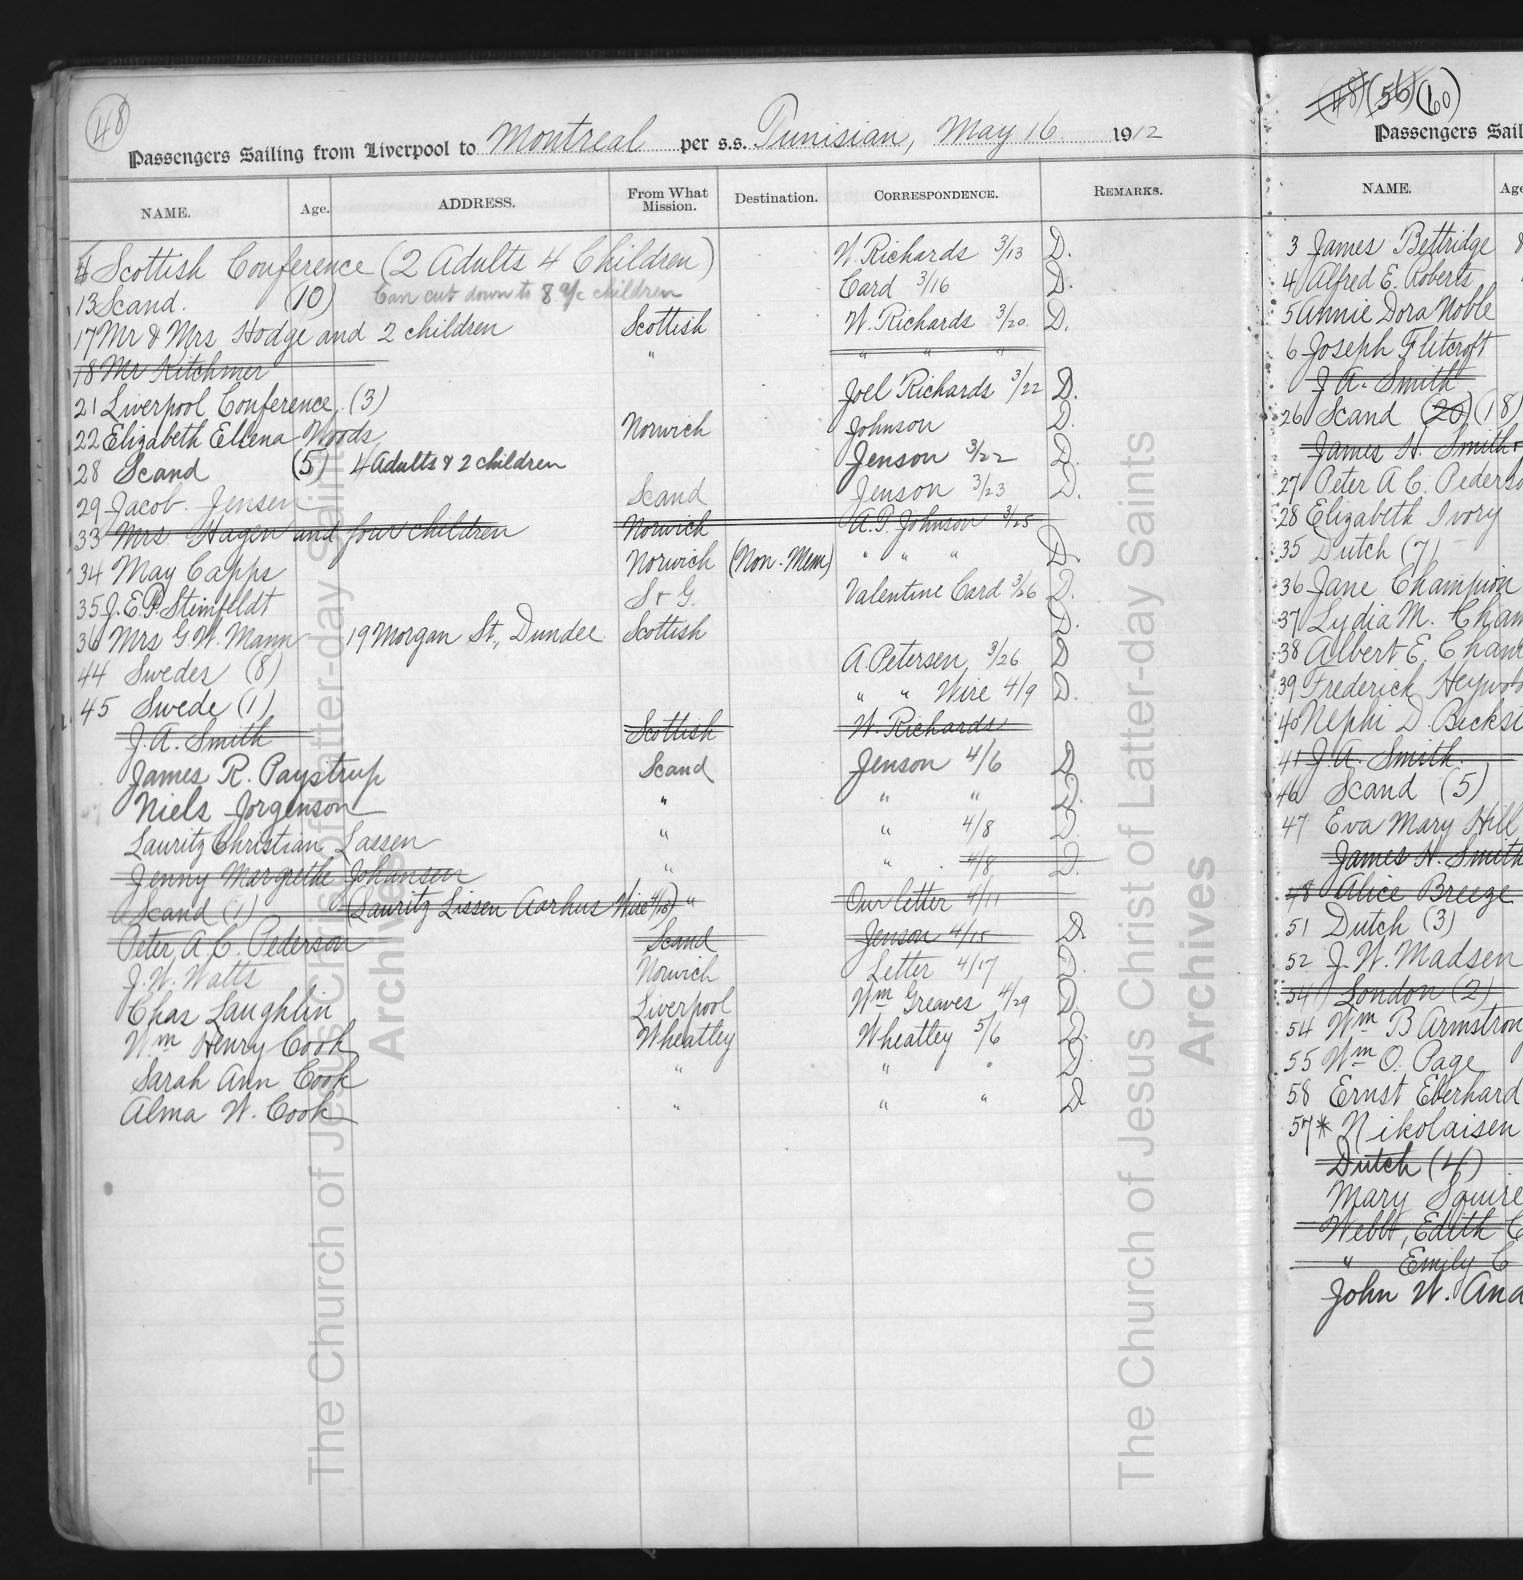 (48)
Passengers Sailing from Liverpool to Montreal per s.s. Tunisian, May 16 1912
NAME. Age. ADDRESS. From What Mission. Destination. CORRESPONDENCE. REMARKS.
Scottish Conference (2 Adults 4 Children) W. Richards 3/13 D.
13 Scand. (10) Can cut down to 8 a/c children Card 3/16 D.
17 Mr & Mrs Hodge and 2 children Scottish W. Richards 3/20 D.
18 Mr Kitchmer " " " "
21 Liverpool Conference (3) Joel Richards 3/22 D.
22 Elizabeth Ellena Woods Norwich Johnson D.
28 Scand (5) 4 Adults & 2 children Jenson 3/22 D.
29 Jacob Jensen Scand Jenson 3/23 D.
33 Mrs Hagen and four children Norwich A.P. Johnson 3/25
34 May Capps Norwich (Non-Mem) " " " D.
35 J.E.P. Steinfeldt S & G. Valentine Card 3/26 D.
36 Mrs G.W. Mann 19 Morgan St., Dundee Scottish D.
44 Swedes (8) A. Petersen 3/26 D
45 Swede (1) " " Wire 4/9 D.
J.A. Smith Scottish W. Richards
James R. Paystrup Scand Jenson 4/6 D
Niels Jorgenson " " " D.
Lauritz Christian Lassen " " 4/8 D.
Jenny Margrethe Johansen " " 4/8 D.
Scand (1) (Lauritz Lissen Aarhus Wire 4/10) " Our letter 4/11
Peter A.C. Pederson Scand Jenson 4/15 D.
J.W. Watts Norwich Letter 4/17 D.
Chas Laughlin Liverpool Wm Greaves 4/29 D
Wm Henry Cook Wheatley Wheatley 5/6 D.
Sarah Ann Cook " " " D.
Alma W. Cook " " " D
(48) (56) (60)
Passengers Sail
NAME. Age
3 James Bettridge
4 Alfred E. Roberts
5 Annie Dora Noble
6 Joseph Flitcroft
J.A. Smith
26 Scand (20) (18)
James H. Smith
27 Peter A.C. Pederso
28 Elizabeth Ivory
35 Dutch (7)
36 Jane Champion
37 Lydia M. Cham
38 Albert E. Cham
39 Frederick Heywoo
40 Nephi D. Beckst
41 J.A. Smith.
46 Scand (5)
47 Eva Mary Hill
James H. Smith
48 Alice Breeze
51 Dutch (3)
52 J.W. Madsen
54 London (2)
54 Wm B Armstron
55 Wm O. Page
58 Ernst Eberhard
57* Nikolaisen
Dutch (4)
Mary Squire
Webb, Edith C
" Emily C
John W. And
The Church of Jesus Christ of Latter-day Saints
Archives
The Church of Jesus Christ of Latter-day Saints
Archives